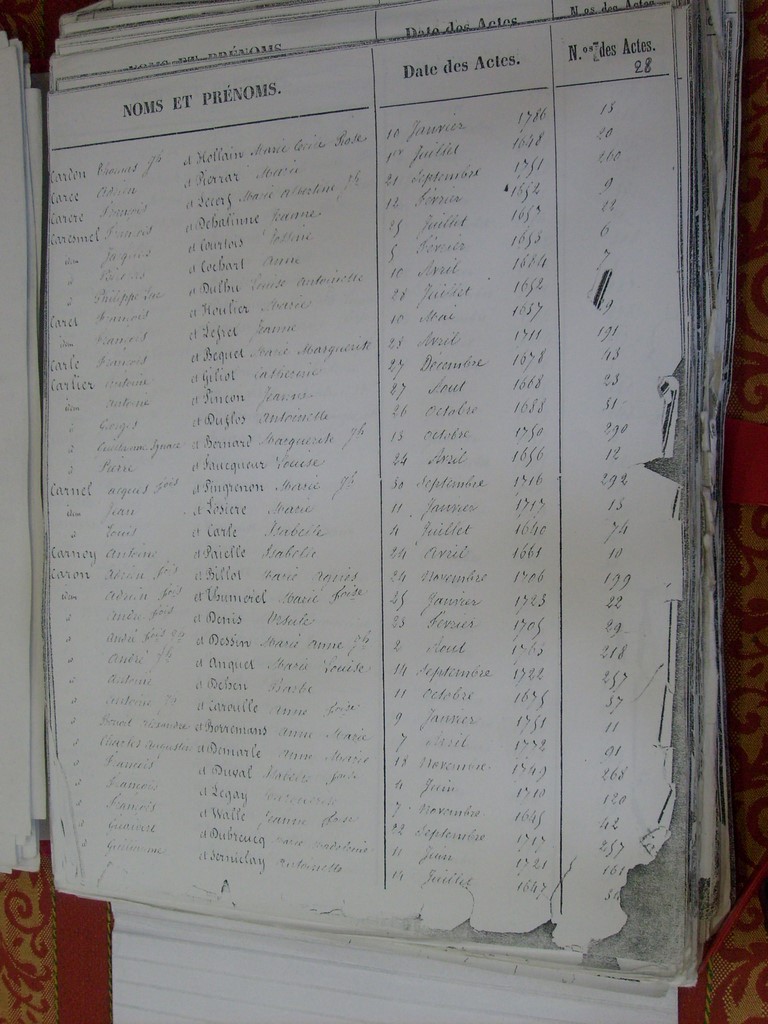 NOMS ET PRÉNOMS. Date des Actes. N.os des Actes.
28
Cardon Thomas et Hollain Marie Cecile Rose 10 Janvier 1786 15
Caree Adrien et Pierrar Marie 1er Juillet 1648 20
Carere François et Lecerf Marie Albertine 21 Septembre 1751 260
Caresmel François et Dehalinne Jeanne 12 Février 1652 9
idem Jacques et Courtois 25 Juillet 1657 22
et Cochart Anne 5 Février 1655 6
Philippe Luc et Dulhu Louise Antoinette 10 Avril 1684 7
Caret François et Houlier Marie 28 Juillet 1652
idem François et Lefret Jeanne 10 Mai 1657 9
Carle François et Bequet Marie Marguerite 28 Avril 1711 191
Carlier Antoine et Giliot Catherine 27 Décembre 1678 43
idem Antoine et Pincon Jeanne 27 Aout 1668 23
Georges et Duflos Antoinette 26 Octobre 1688 51
Guillaume Ignace et Bernard Marguerite 15 Octobre 1750 290
Pierre et Saucqueur Louise 24 Avril 1656 12
Carnel Jacques fois et Pingrenon Marie 30 Septembre 1716 292
idem Jean et Losiere Marie 11 Janvier 1717 15
Louis et Carle Isabelle 4 Juillet 1640 74
Carnoy Antoine et Paielle Isabelle 24 Avril 1661 10
Caron Adrien fois et Billot Marie Agnès 24 Novembre 1706 199
idem Adrien fois et Thumerel Marie foise 25 Janvier 1723 22
André fois et Denis Ursule 23 Février 1705 29
André fois et Dessin Marie Anne 2 Aout 1763 218
André et Anquet Marie Louise 14 Septembre 1722 257
Antoine et Dehen Barbe 11 Octobre 1675 57
Antoine et Laroulle Anne foise 9 Janvier 1751 11
Benoit Alexandre et Borremans Anne Marie 7 Avril 1772 91
Charles Augustin et Demarle Anne Marie 18 Novembre 1749 268
François et Duval Isabelle 4 Juin 1710 120
François et Legay 7 Novembre 1645 42
François et Walle Jeanne foise 22 Septembre 1717 257
et Dubreucq Marie Madeleine 11 Juin 1721 161
Guillaume et Serniclay Antoinette 14 Juillet 1647